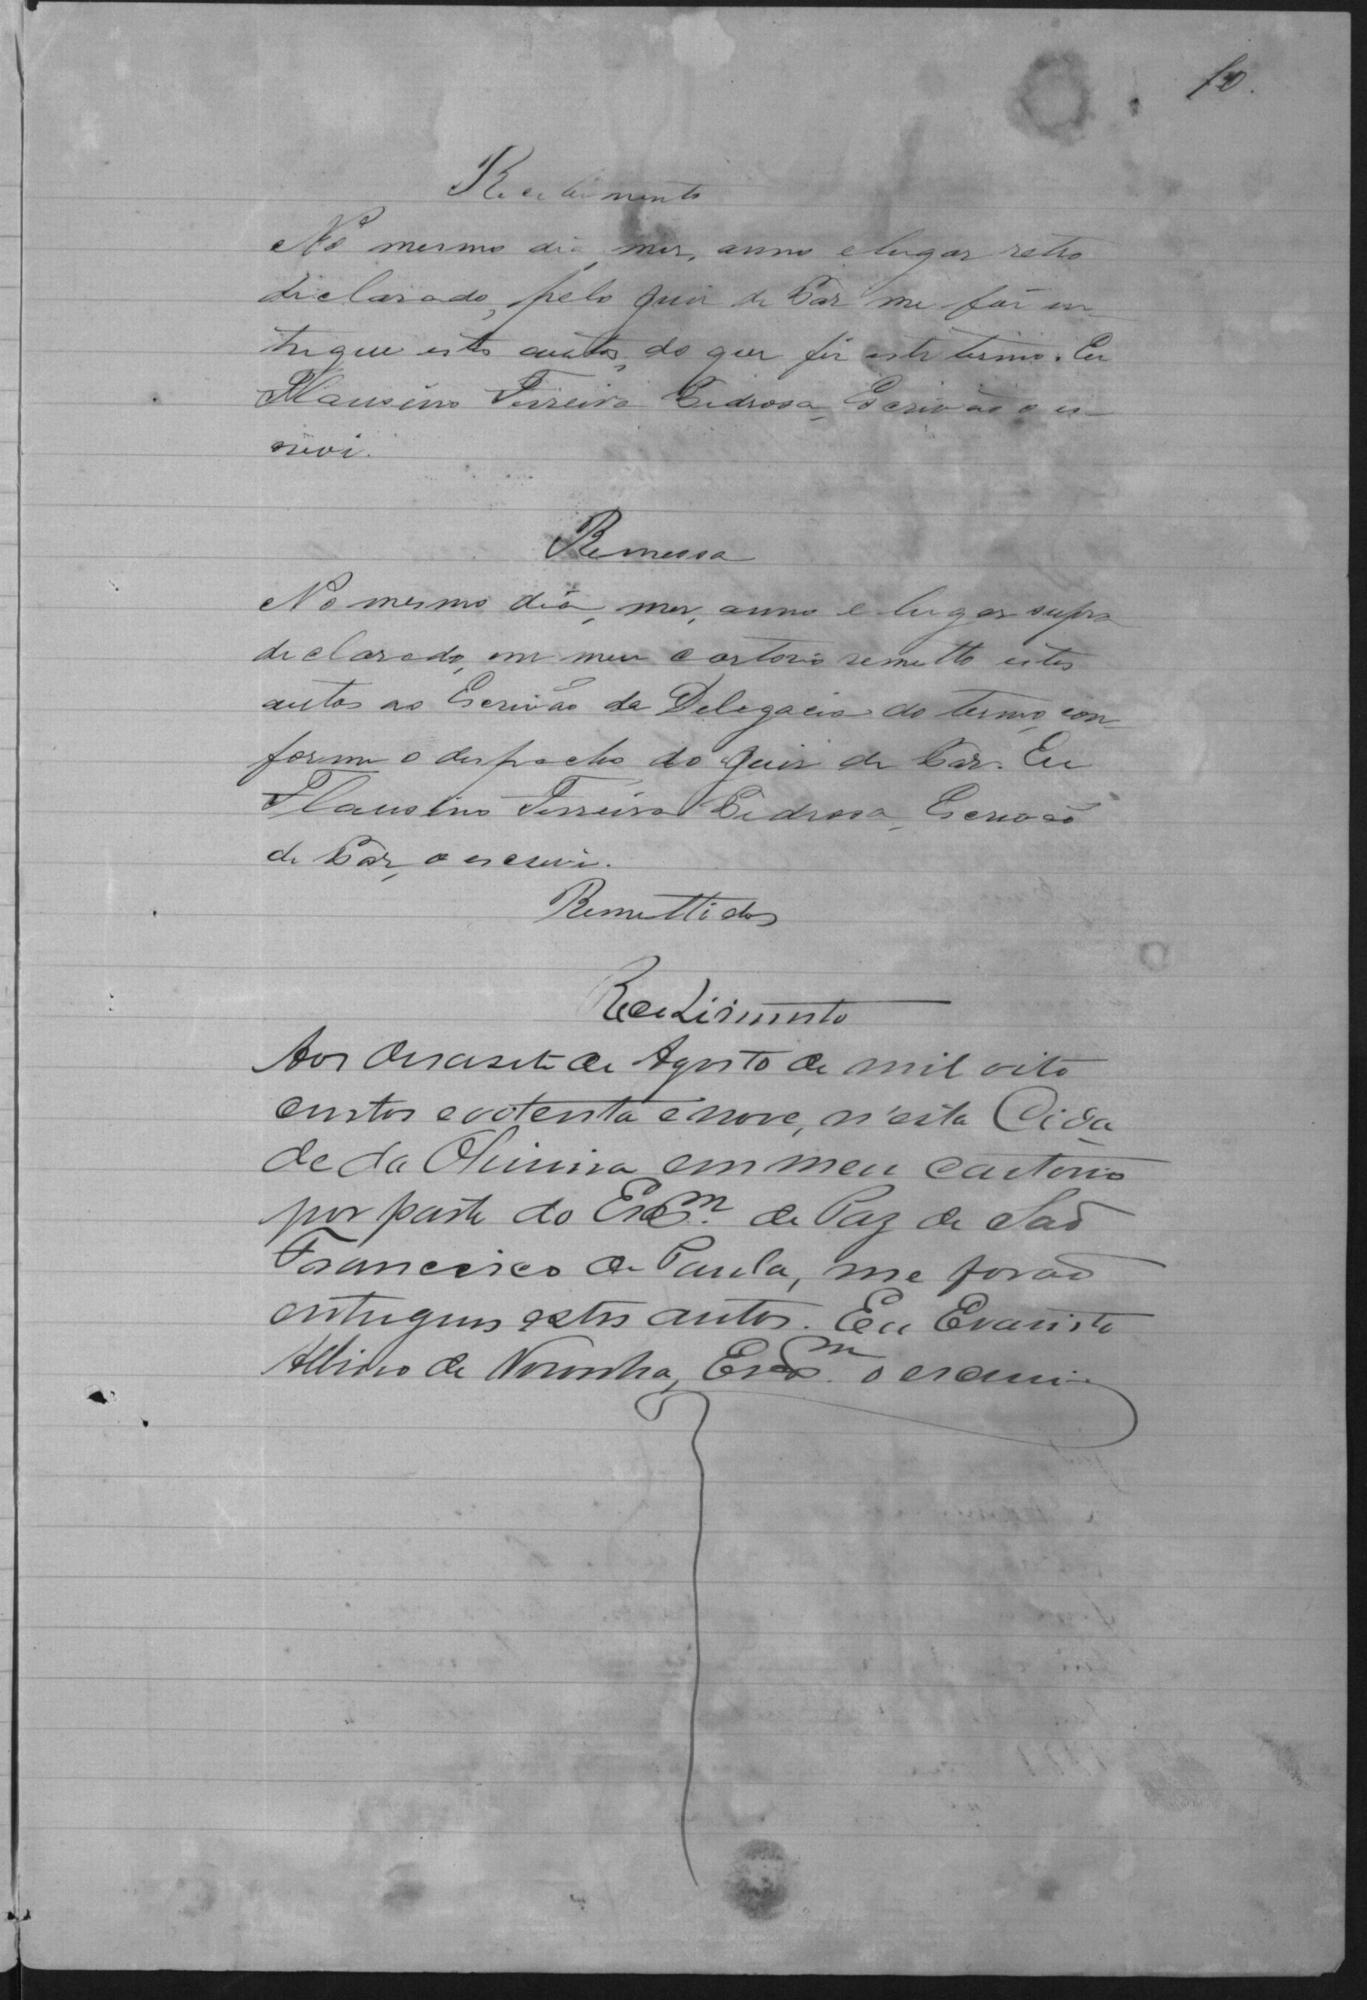 10.
Recebimento
No mesmo dia, mez, anno e lugar retro
declarado, pelo Juiz de Paz me foi en-
tregue estes autos, do que fiz este termo. Eu
Flausino Ferreira Pedrosa, Escrivão o es-
crevi.
Remessa
No mesmo dia, mez, anno e lugar supra
declarado, em meu cartorio remetto estes
autos ao Escrivão da Delegacia do termo, con-
forme o despacho do Juiz de Paz. Eu
Flausino Ferreira Pedrosa, Escrivão
de Paz, o escrevi.
Remettidos
Recebimento
Aos desasete de Agosto de mil oito
centos e oitenta e nove, n'esta Cida
de da Oliveira em meu cartorio
por parte do Escm. de Paz de São
Francisco de Paula, me forão
entregues estes autos. Eu Evaristo
Albino de Noronha, Escm. o escrevi